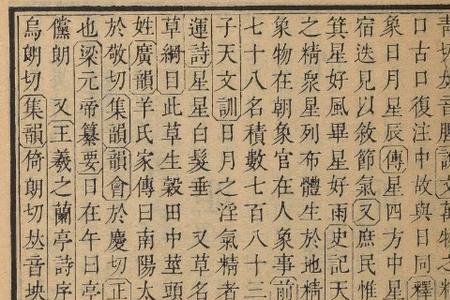 靑切𠀤音腥說文萬物之精
口古口復注中故與日同釋
象日月星辰傳星四方中星
宿迭見以敘節氣又庶民惟
箕星好風畢星好雨史記天
之精衆星列布體生於地精
象物在朝象官在人象事前
七十八名積數七百八十三
子天文訓日月之淫氣精者
運詩星星白髮垂 又草名
草綱目此草生穀田中莖頭
姓廣韻羊氏家傳曰南陽太
於敬切集韻韻會於慶切正
也梁元帝纂要日在午曰亭
儻朗 又王羲之蘭亭詩序
烏朗切集韻倚朗切𠀤音坱